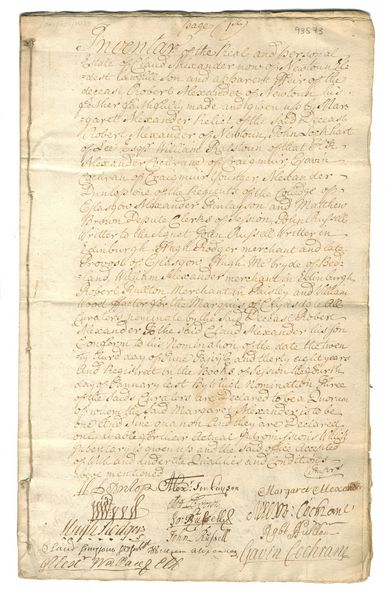 page (1st)
93593
Inventar of the Real and Personal
Estate of Claud Alexander now of Newtoun
Eldest Lawfull Son and apparent Heir of the
deceast Robert Alexander of Newtoun his
father faithfully made and given up by Mar
garett Alexander Relict of the said Deceast
Robert Alexander of Newtoun, John Lockhart
of Lee Esqr William Ralstoun of that Ilk
Alexander Cochrane of Craigmuir Gavin
Cochran of Craigmuir Younger Alexander
Dunlop one of the Regents of the Colledge of
Glasgow Alexander Finlayson and Matthew
Brown Depute Clerks of Session John Russell
Writter to the Signet John Russell Writter in
Edinburgh Hugh Rodger merchant and late
Provost of Glasgow Hugh McBryde of
and William Alexander merchant in Edinburgh
Robert Fulton Merchant in Paisley and William
Wood factor for the Marquis of Clydsdale All
Curators nominate by the said Deceast Robert
Alexander To the said Claud Alexander his son
Conform to his Nomination of the date the twen
ty third day of June and thirty eight years
And Registrat in the Books of Session the fourth
day of January last By which Nomination Three
of the Saids Curators are Declared to be a Quorum
of whom the said Margaret Alexander is to be
one And Sine qua non And they are Declared
only lyable for their actual Intromissions Which
Inventar is given up and the said office accepted
of With and under the Qualities and Conditions
above mentioned
Al Dunlop Alexr Finlayson
Margaret Alexander
Mw Brown
Alexr Cochrane
Hugh Rodger
Jo: Russell
Robt Fulton
John Russell
Gavin Cochrane
William Alexander
Alexr Wallace